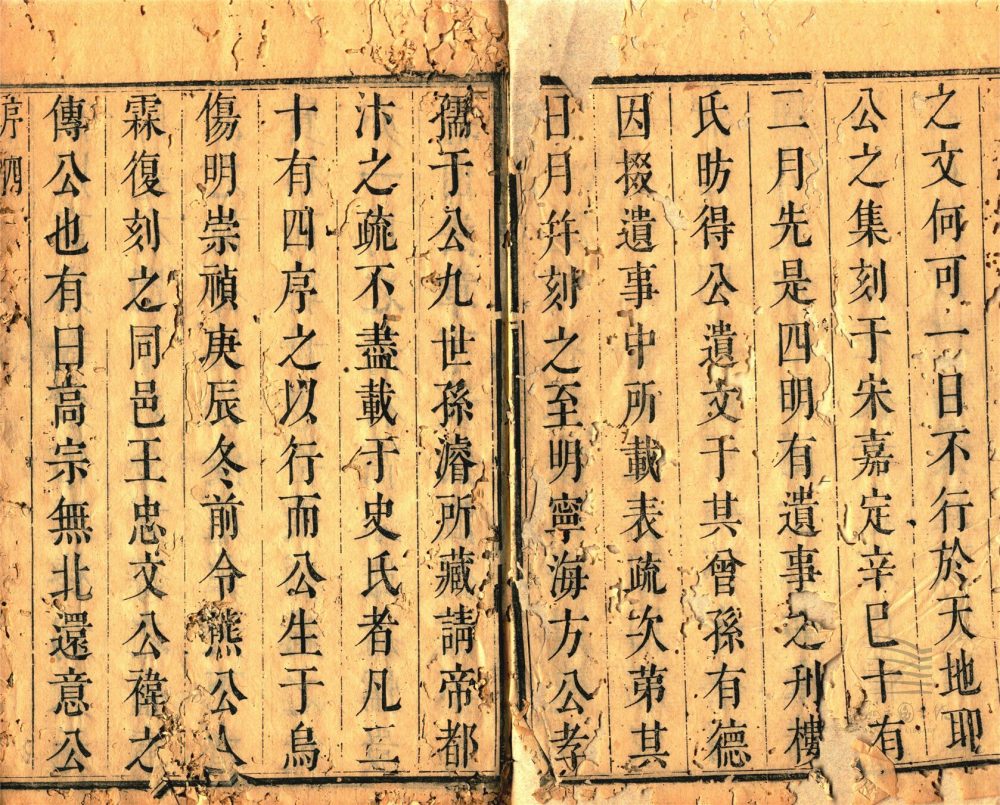 之文何可一日不行於天地耶
公之集刻于宋嘉定辛巳十有
二月先是四明有遺事之刋樓
氏昉得公遺文于其曾孫有德
因掇遺事中所載表疏次第其
日月幷刻之至明寧海方公孝
孺于公九世孫濬所藏請帝都
汴之疏不盡載于史氏者凡二
十有四序之以行而公生于烏
傷明崇禎庚辰冬前令熊公人
霖復刻之同邑王忠文公禕之
傳公也有曰高宗無北還意公
序